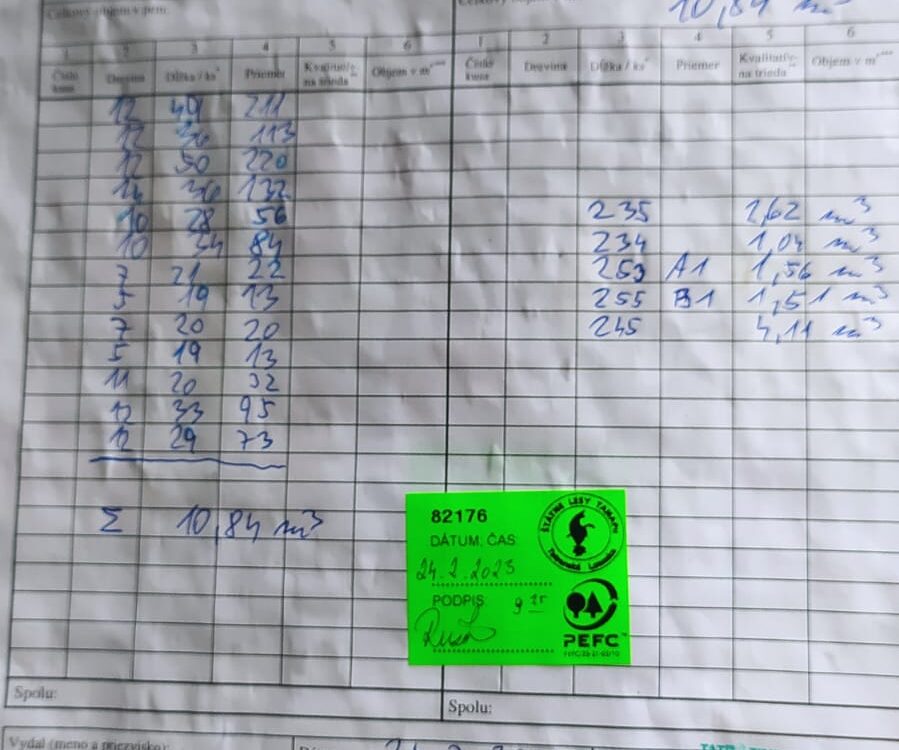 Celkový objem v
10,84 m³
1 2 3 4 5 6
Číslo kusa Drevina Dĺžka / ks* Priemer Kvalitatív- na trieda** Objem v m³***
12 49 211
12 36 113
12 50 220
12 36 132
10 28 56
10 34 84
7 21 22
5 19 13
7 20 20
5 19 13
11 20 32
12 33 95
12 29 73
Σ 10,84 m³
Spolu:
1 2 3 4 5 6
Číslo kusa Drevina Dĺžka / ks* Priemer Kvalitatív- na trieda** Objem v m³***
235 2,62 m³
234 1,04 m³
253 A1 1,56 m³
255 B1 1,51 m³
245 4,11 m³
Spolu:
82176
DÁTUM, ČAS
24.2.2023
PODPIS 9 15
ŠTÁTNE LESY TANAPU
PEFC
Vydal (meno a priezvisko):